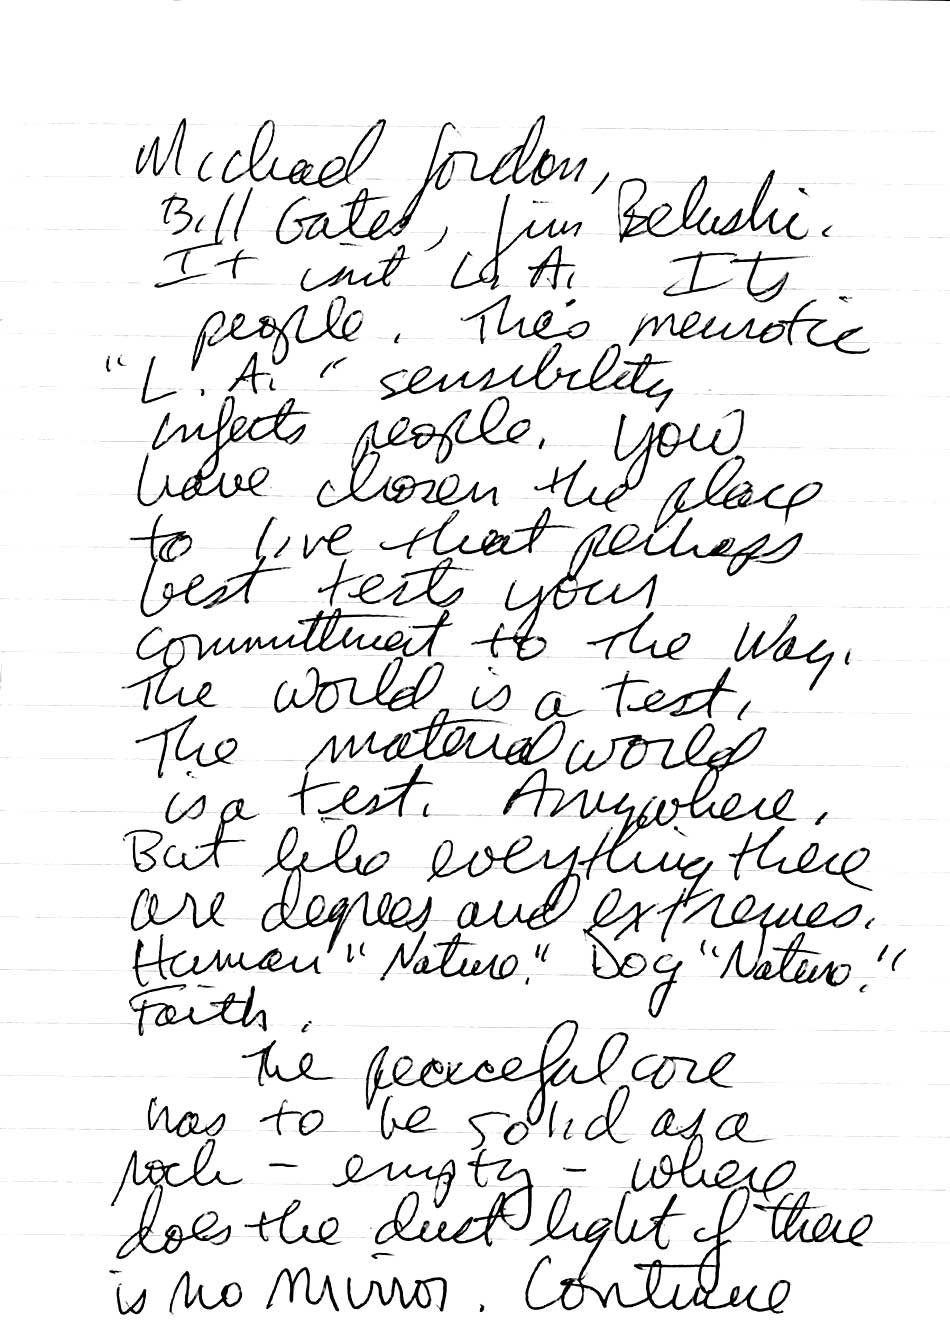 Michael Jordon,
Bill Gates, Jim Belushi.
It isnt L.A. Its
people. This neurotic
"L.A." sensibility
infects people. You
have chosen the place
to live that perhaps
best tests your
committment to the Way.
The world is a test.
The material world
is a test. Anywhere.
But like everything there
are degrees and extremes.
Human "Nature." Dog "Nature."
Faith.
The peaceful core
has to be solid as a
rock - empty - where
does the dust light if there
is no mirror. Continue